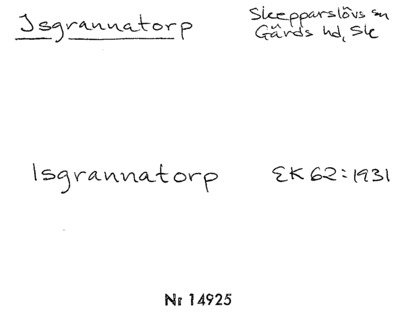 Isgrannatorp
Skepparslövs sn
Gärds hd, Sk
Isgrannatorp
EK 62:1931
Nr 14925